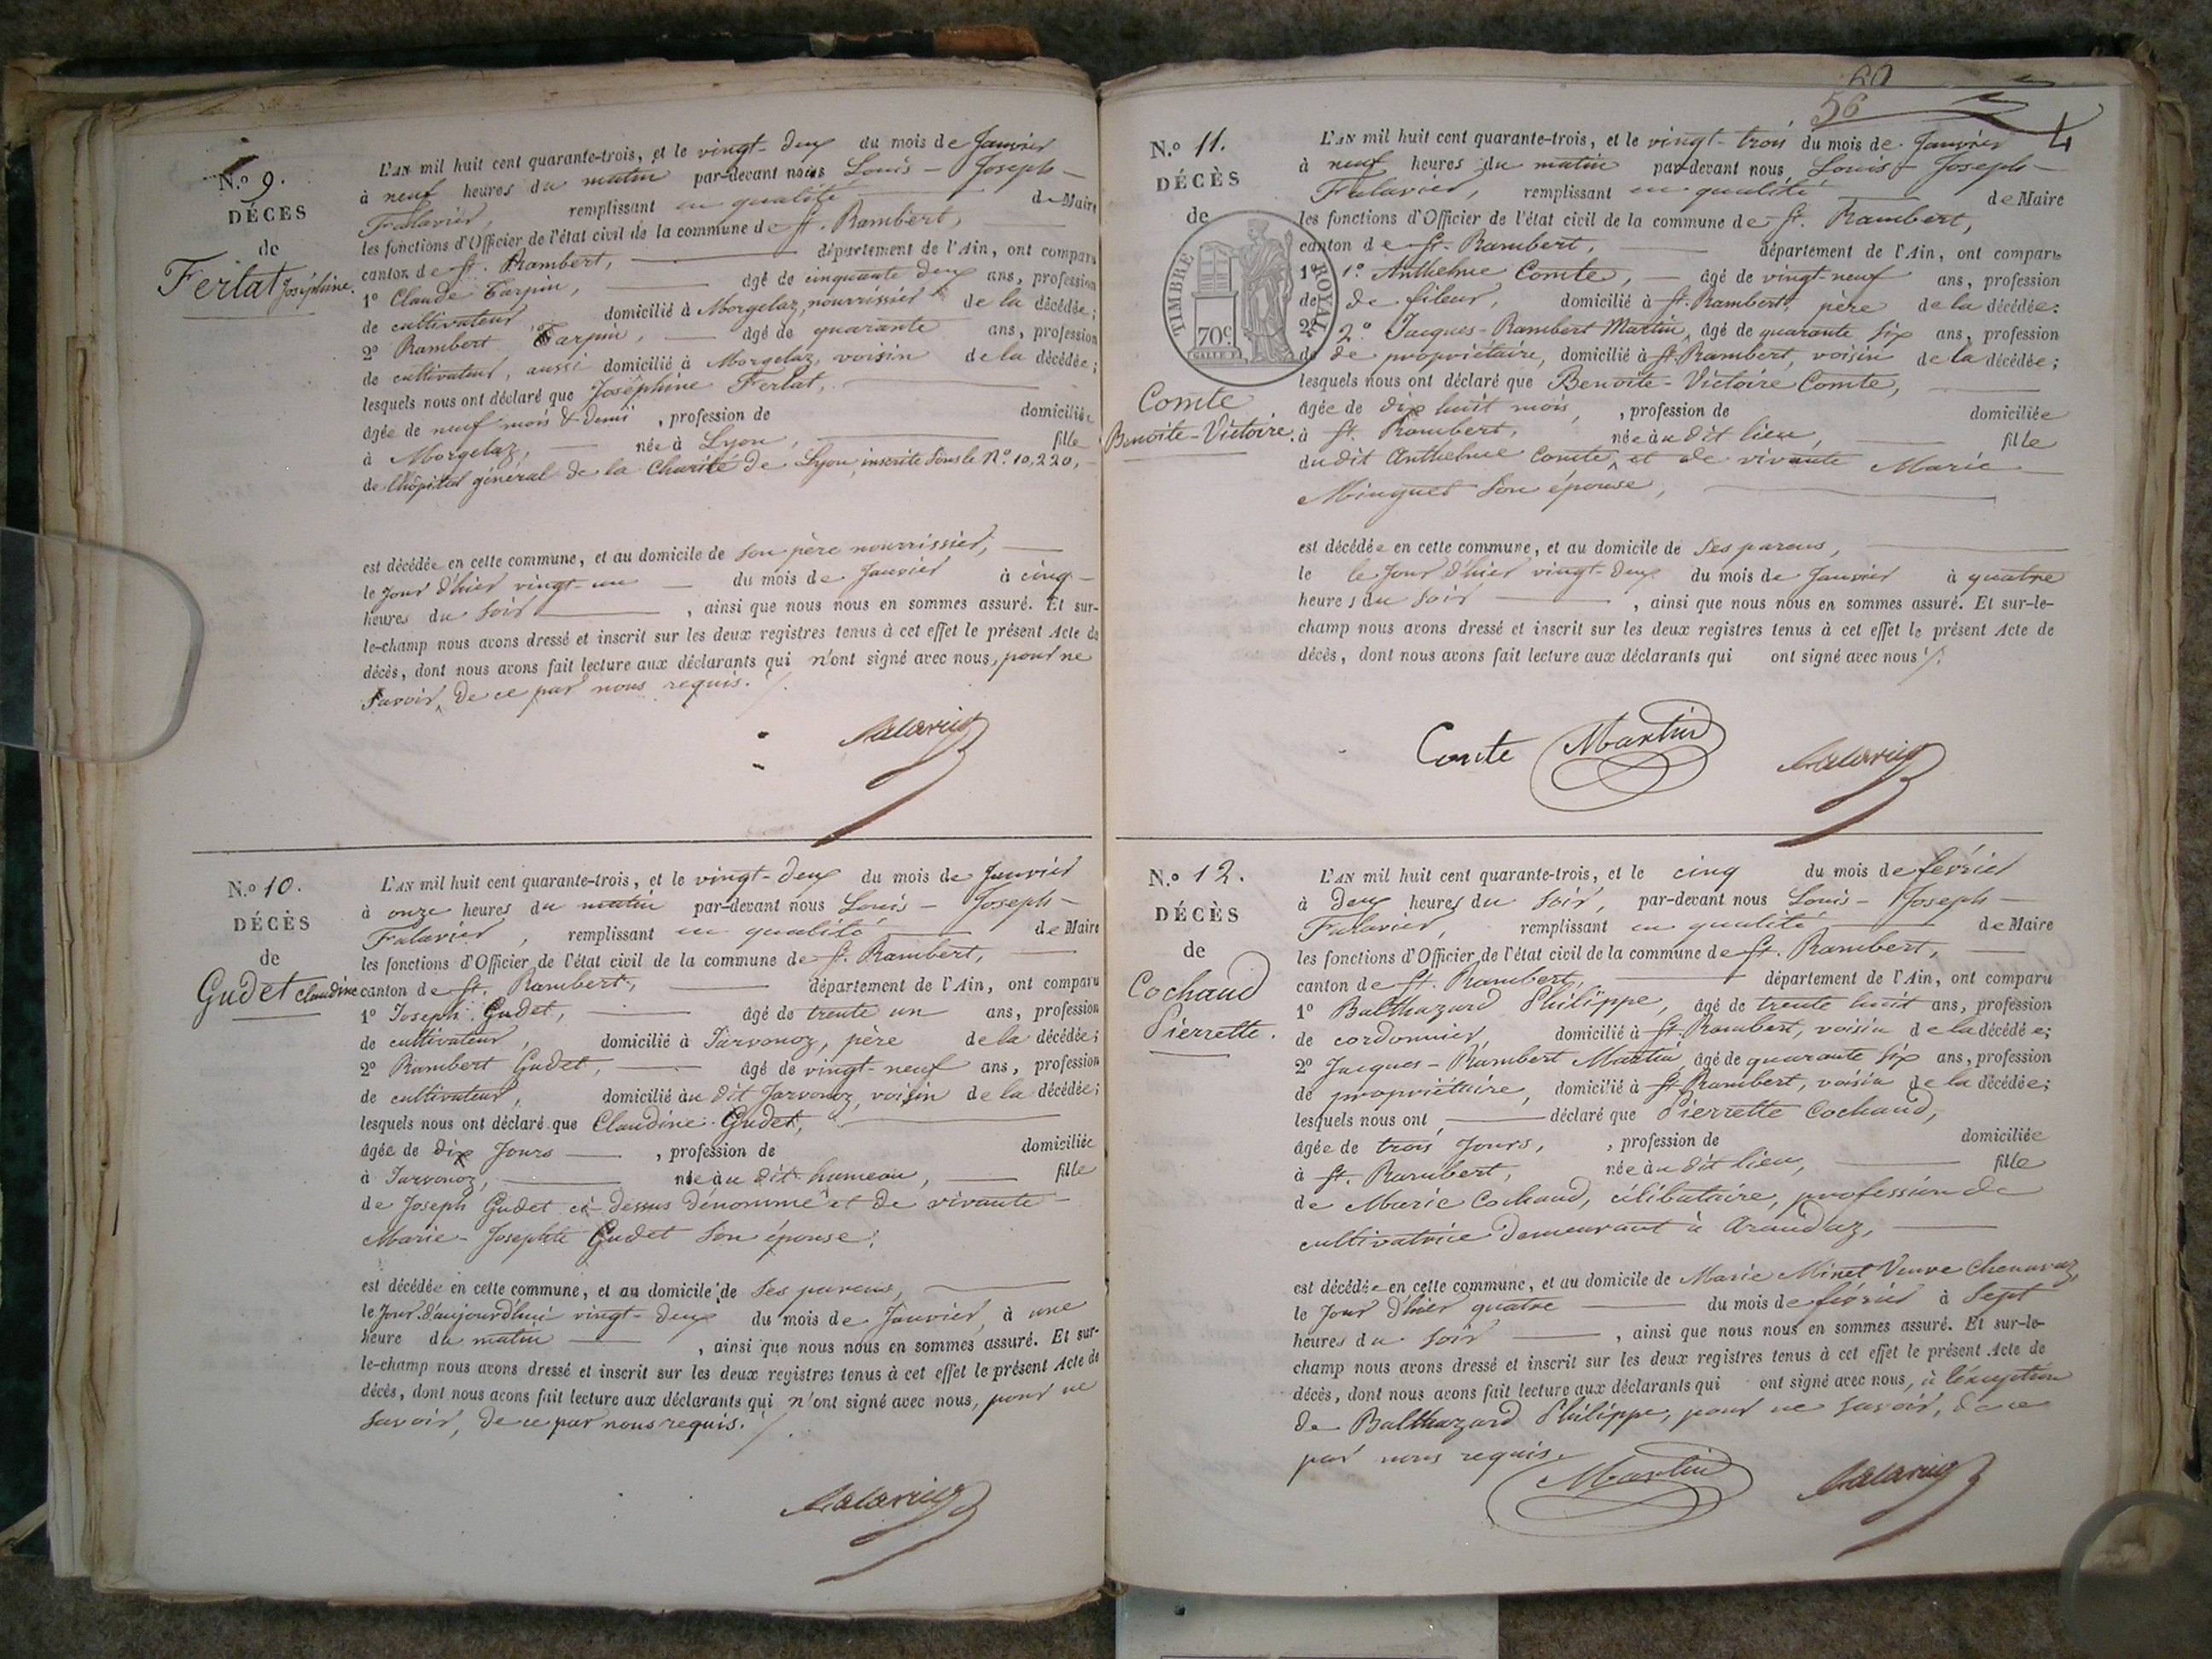 N.º 9.
DÉCÈS
de
Ferlat Joséphine.
L'AN mil huit cent quarante-trois, et le vingt-deux du mois de Janvier
à neuf heures du matin par-devant nous Louis-Joseph-
Falavier, remplissant en qualité de Maire
les fonctions d'Officier de l'état civil de la commune de St. Rambert,
canton de St. Rambert, département de l'Ain, ont comparu
1º Claude Tarpin, âgé de cinquante deux ans, profession
de cultivateur domicilié à Morgelaz, nourrissier de la décédée;
2º Rambert Tarpin, âgé de quarante ans, profession
de cultivateur, aussi domicilié à Morgelaz, voisin de la décédée;
lesquels nous ont déclaré que Joséphine Ferlat,
âgée de neuf mois & demi, profession de domiciliée
à Morgelaz, née à Lyon, fille
de l'hôpital général de la Charité de Lyon, inscrite sous le Nº. 10,220,
est décédée en cette commune, et au domicile de son père nourrissier,
le jour d'hier vingt-un du mois de Janvier à cinq
heures du soir, ainsi que nous nous en sommes assuré. Et sur-
le-champ nous avons dressé et inscrit sur les deux registres tenus à cet effet le présent Acte de
décès, dont nous avons fait lecture aux déclarants qui n'ont signé avec nous, pour ne
savoir, de ce par nous requis./.
Falavier
N.º 10.
DÉCÈS
de
Gudet Claudine
L'AN mil huit cent quarante-trois, et le vingt-deux du mois de Janvier
à onze heures du matin par-devant nous Louis-Joseph-
Falavier, remplissant en qualité de Maire
les fonctions d'Officier de l'état civil de la commune de St. Rambert,
canton de St. Rambert, département de l'Ain, ont comparu
1º Joseph Gudet, âgé de trente un ans, profession
de cultivateur, domicilié à Jarvonoz, père de la décédée;
2º Rambert Gudet, âgé de vingt-neuf ans, profession
de cultivateur, domicilié au dit Jarvonoz, voisin de la décédée;
lesquels nous ont déclaré que Claudine Gudet,
âgée de dix jours, profession de domiciliée
à Jarvonoz, née au dit hameau, fille
de Joseph Gudet ci-dessus dénommé et de vivante
Marie-Josephte Gudet son épouse;
est décédée en cette commune, et au domicile de ses parens,
le jour d'aujourd'hui vingt-deux du mois de Janvier, à une
heure du matin, ainsi que nous nous en sommes assuré. Et sur-
le-champ nous avons dressé et inscrit sur les deux registres tenus à cet effet le présent Acte de
décès, dont nous avons fait lecture aux déclarants qui n'ont signé avec nous, pour ne
savoir, de ce par nous requis./.
Falavier
60
56
4
N.º 11.
DÉCÈS
de
TIMBRE ROYAL
70c
Comte
Benoite-Victoire.
L'AN mil huit cent quarante-trois, et le vingt-trois du mois de Janvier
à neuf heures du matin par-devant nous Louis-Joseph-
Falavier, remplissant en qualité de Maire
les fonctions d'Officier de l'état civil de la commune de St. Rambert,
canton de St. Rambert, département de l'Ain, ont comparu
1º 1º. Anthelme Comte, âgé de vingt-neuf ans, profession
de de fileur, domicilié à St. Rambert, père de la décédée:
2º 2º. Jacques-Rambert Martin, âgé de quarante six ans, profession
de de propriétaire, domicilié à St. Rambert, voisin de la décédée;
lesquels nous ont déclaré que Benoite-Victoire Comte,
âgée de dix huit mois, profession de domiciliée
à St. Rambert, née au dit lieu, fille
dudit Anthelme Comte, et de vivante Marie
Minguet son épouse,
est décédée en cette commune, et au domicile de ses parens,
le le jour d'hier vingt-deux du mois de Janvier à quatre
heures du soir, ainsi que nous nous en sommes assuré. Et sur-le-
champ nous avons dressé et inscrit sur les deux registres tenus à cet effet le présent Acte de
décès, dont nous avons fait lecture aux déclarants qui ont signé avec nous./.
Comte Martin Falavier
N.º 12.
DÉCÈS
de
Cochaud
Pierrette.
L'AN mil huit cent quarante-trois, et le cinq du mois de février
à deux heures du soir, par-devant nous Louis-Joseph-
Falavier, remplissant en qualité de Maire
les fonctions d'Officier de l'état civil de la commune de St. Rambert,
canton de St. Rambert, département de l'Ain, ont comparu
1º Balthazard Philippe, âgé de trente huit ans, profession
de cordonnier, domicilié à St. Rambert, voisin de la décédée;
2º Jacques-Rambert Martin, âgé de quarante six ans, profession
de propriétaire, domicilié à St. Rambert, voisin de la décédée;
lesquels nous ont déclaré que Pierrette Cochaud,
âgée de trois jours, profession de domiciliée
à St. Rambert, née au dit lieu, fille
de Marie Cochaud, célibataire, profession de
cultivatrice demeurant à Arandaz,
est décédée en cette commune, et au domicile de Marie Minet Veuve Chenavaz,
le jour d'hier quatre du mois de février à sept
heures du soir, ainsi que nous nous en sommes assuré. Et sur-le-
champ nous avons dressé et inscrit sur les deux registres tenus à cet effet le présent Acte de
décès, dont nous avons fait lecture aux déclarants qui ont signé avec nous, à l'exception
de Balthazard Philippe, pour ne savoir, de ce
par nous requis.
Martin Falavier